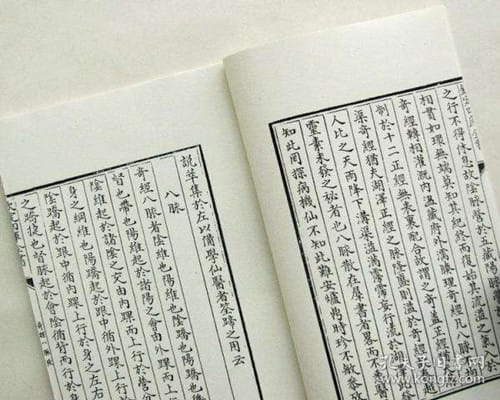 之行不得休息故陰脈營於五藏陽脈
相貫如環無端莫知其紀終而復始其流溢之
奇經轉相灌溉內溫藏府外濡腠理奇經凡八脈
制於十二正經無表裏配合故謂之奇蓋正經
渠奇經猶夫湖澤正經之脈隆盛則溢於奇
人比之天雨降下溝渠溢滿霶霈妄行流於湖
靈素未發之秘者也八脈散在羣書者略而不
知此罔探病機仙不知此難安爐鼎時珍不敏參攷
說萃集於左以備學仙醫者筌蹄之用云
八脈
奇經八脈者陰維也陽維也陰蹻也陽蹻也
督也帶也陽維起於諸陽之會由外踝而
陰維起於諸陰之交由內踝而上行於營分
身之綱維也陽蹻起於跟中循外踝上行於
陰蹻起於跟中循內踝上行於身之左右
之蹻捷也督脈起於會陰循背而行於
孔夫子旧书网
www.kongfz.com